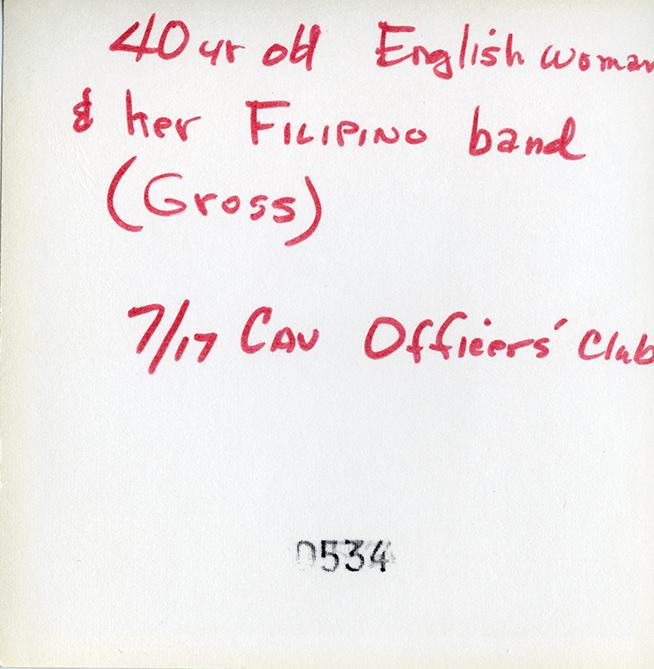 40 yr old English woman
& her FILIPINO band
(Gross)
7/17 CAV Officers' Club
0534